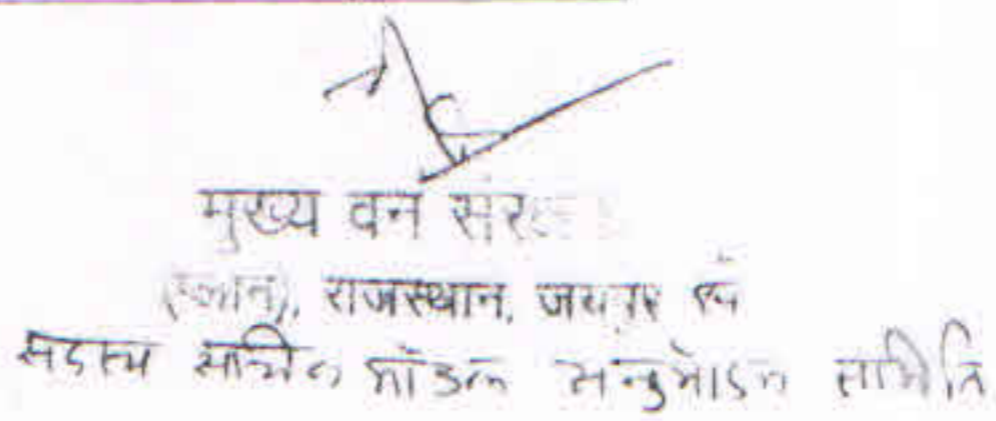 मुख्य वन संर
राजस्थान, जयपुर एवं
सदस्य सचिव मॉडल अनुमोदन समिति